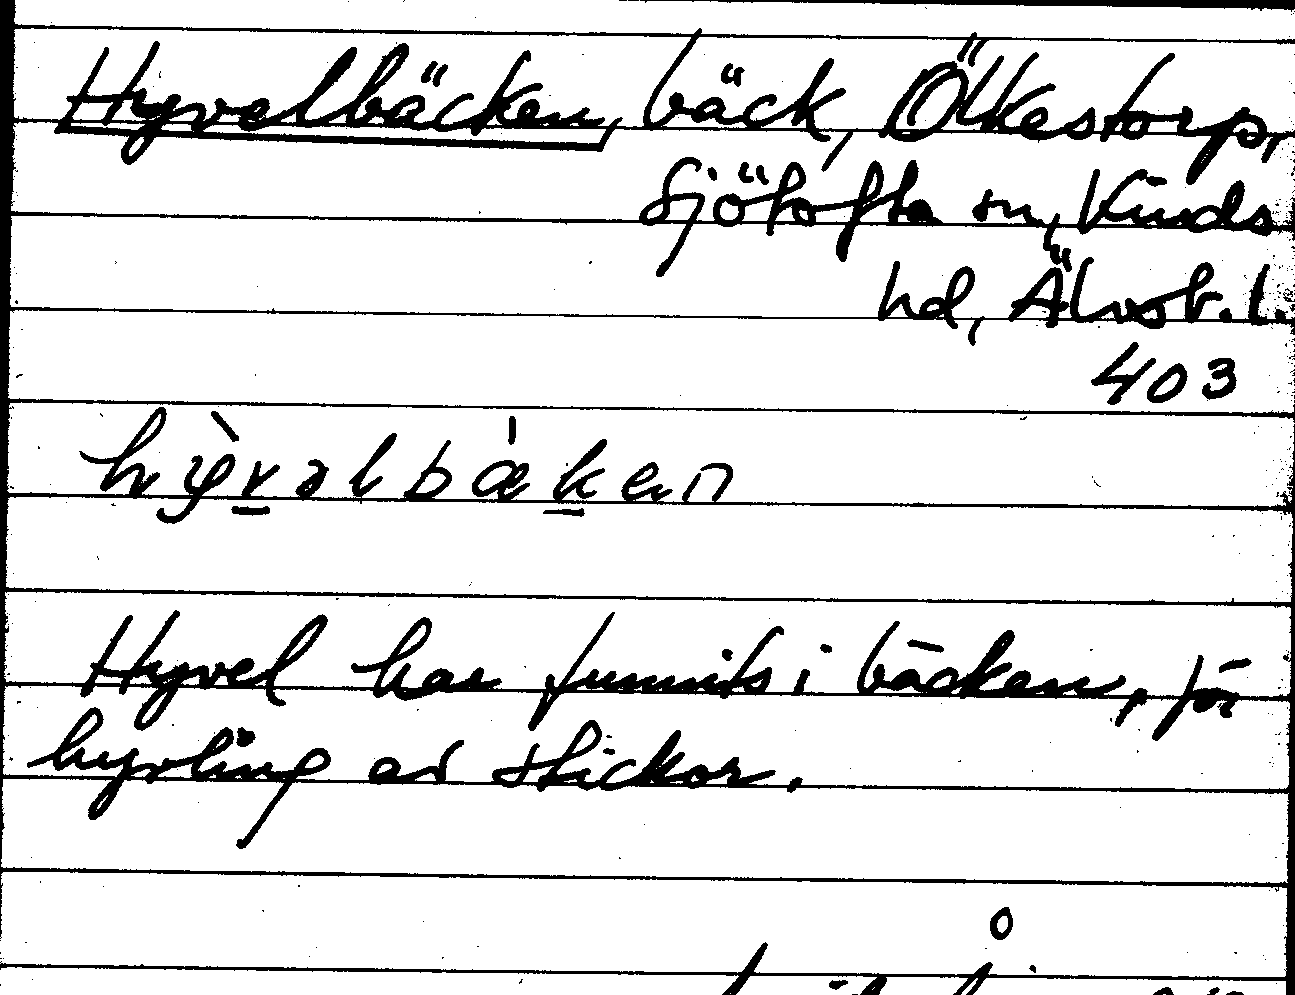 Hyvelbäcken, bäck, Ölkestorp,
Sjötofta sn, Kinds
hd, Älvsb. l.
403
hỳvəlbǽken
Hyvel har funnits i bäcken, för
hyvling av stickor.